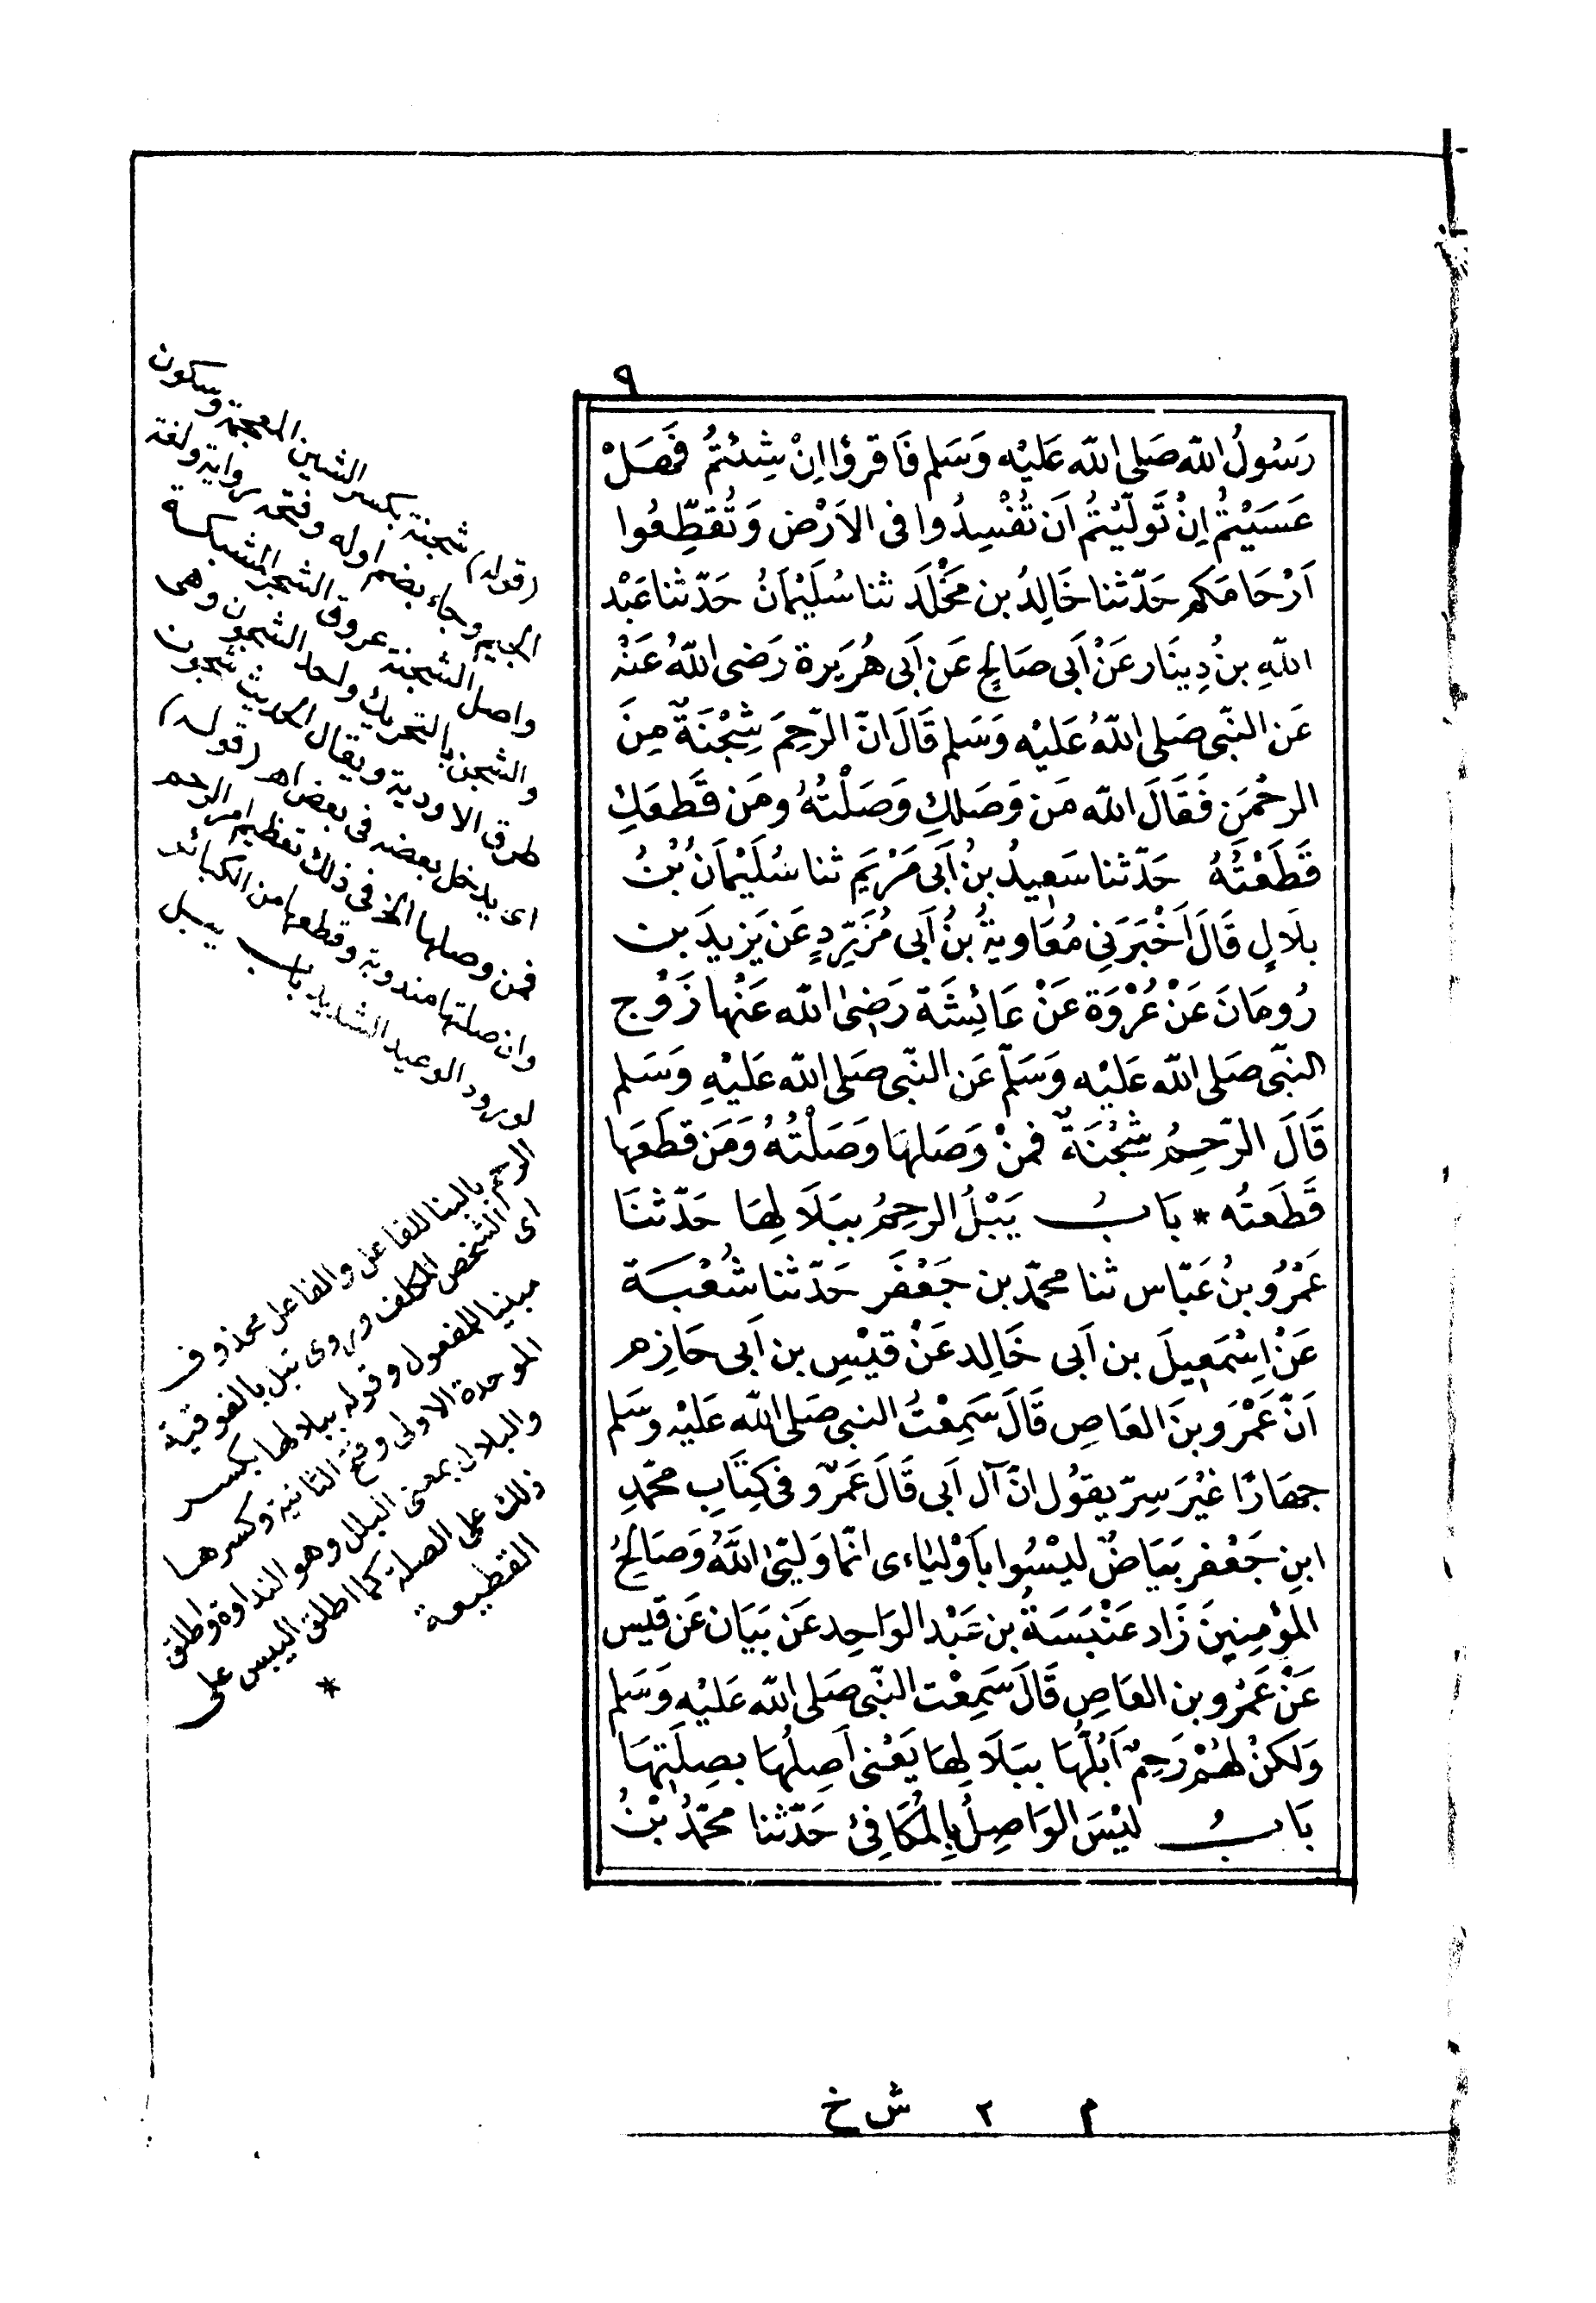 ٩
رَسُولُ الله صَلى الله عَليْه وَسَلم فَاقرؤا اِنْ شِئتُمْ فَهَصَلْ
عَسَيْتُمْ اِنْ تَوَلّيْتُمْ اَن تُفْسِدُوا فى الاَرْض وَتُقطِّعُوا
اَرْحَامَكم حَدّثنا خَالِدُ بن مَخْلَد ثنا سُلَيْمَانُ حَدّثنا عَبْد
اللهِ بنُ دِينَار عَنْ اَبى صَالِحٍ عَن اَبى هُرَيرة رَضى اللهُ عَنْه
عَن النّبى صَلى اللهُ عَليْه وَسَلم قَالَ انّ الرّحِمَ شِجْنَةٌ مِنَ
الرحْمَنِ فَقَالَ الله مَن وَصَلكِ وَصَلْتُهُ ومَن قَطعَكِ
قَطَعْتُهُ حَدّثنا سَعِيدُ بنُ اَبى مَرْيَم ثنا سُلَيْمَانُ بْنُ
بلَالٍ قَالَ اَخْبَرَنِى مُعَاوِيةُ بنُ اَبى مُزَرِّدٍ عَن يَزيدَ بن
رُومَانَ عَنْ عُرْوَة عَنْ عَائِشَةَ رَضِىَ الله عَنْها زَوْج
النبّى صَلى الله عَليْه وَسَلّم عَن النّبى صَلى الله عَليْهِ وَسَلم
قَالَ الرّحِمُ شِجْنَةٌ فمنْ وَصَلهَا وَصَلْتُهُ وَمَن قطَعَها
قَطَعتُه * بَابُ يَبُلُّ الرحِمُ ببَلَالِهَا حَدّثنَا
عَمْرُو بنُ عَبّاس ثنا محمّد بن جَعْفَر حَدّثنا شُعْبَة
عَنْ اِسْمَعِيلَ بن اَبى خَالِد عَنْ قيْسِ بن اَبى حَازِم
اَنّ عَمْرَو بنَ العَاصِ قَالَ سَمِعْتُ النبى صَلى الله عَليْه وَسَلم
جهَارًا غيْرَ سِرّ يقوُل انّ آل اَبى قَالَ عَمْرٌو فى كِتَابِ محمّدِ
ابنِ جَعْفر بَيَاضٌ ليْسُوا باَوْليَاءى انّما وَليّىَ اللهُ وَصَالِحُ
المؤمِنِينَ زَاد عَنْبَسَةُ بن عَبْد الوَاحِد عَن بَيَان عَن قيس
عَنْ عَمْرو بن العَاصِ قَالَ سَمِعْت النّبى صَلى الله عَليْهِ وَسَلم
وَلكنْ لهُمْ رَحِمٌ اَبُلّهَا ببَلَالِهَا يَعْنى اَصِلُهَا بصِلَتِهَا
بَابُ ليْسَ الوَاصِلُ بِالمُكَافِئ حَدّثنا محمّدُ بْنُ
(قوله) شجنة بكسر الشين المعجمة وسكون
الجيم وجاء بضم اوله وفتحه رواية ولغة
واصل الشجنة عروق الشجر المشبكة
والشجن بالتحريك واحد الشجون وهى
طرق الاودية ويقال الحديث شجون
اى يدخل بعضه فى بعض اهـ (قوله)
فمن وصلها الخ فى ذلك تعظيم امر الرحم
وان صلتها مندوبة وقطعها من الكبائر
لورود الوعيد الشديد باب يبل
الرحم بالبنا للفاعل والفاعل محذوف
اى الشخص المكلف وروى تبل بالفوقية
مبنيا للمفعول وقوله ببلالها بكسر
الموحدة الاولى وفتح الثانية وكسرها
والبلال بمعنى البلل وهو النداوة واطلق
ذلك على الصلة كما اطلق اليبس على
القطيعة
*
م ٢ ش خ